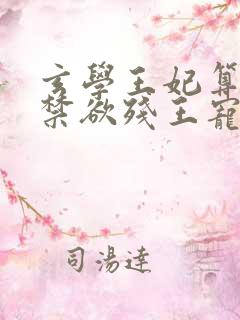 玄學王妃算
禁欲殘王寵
司湯達